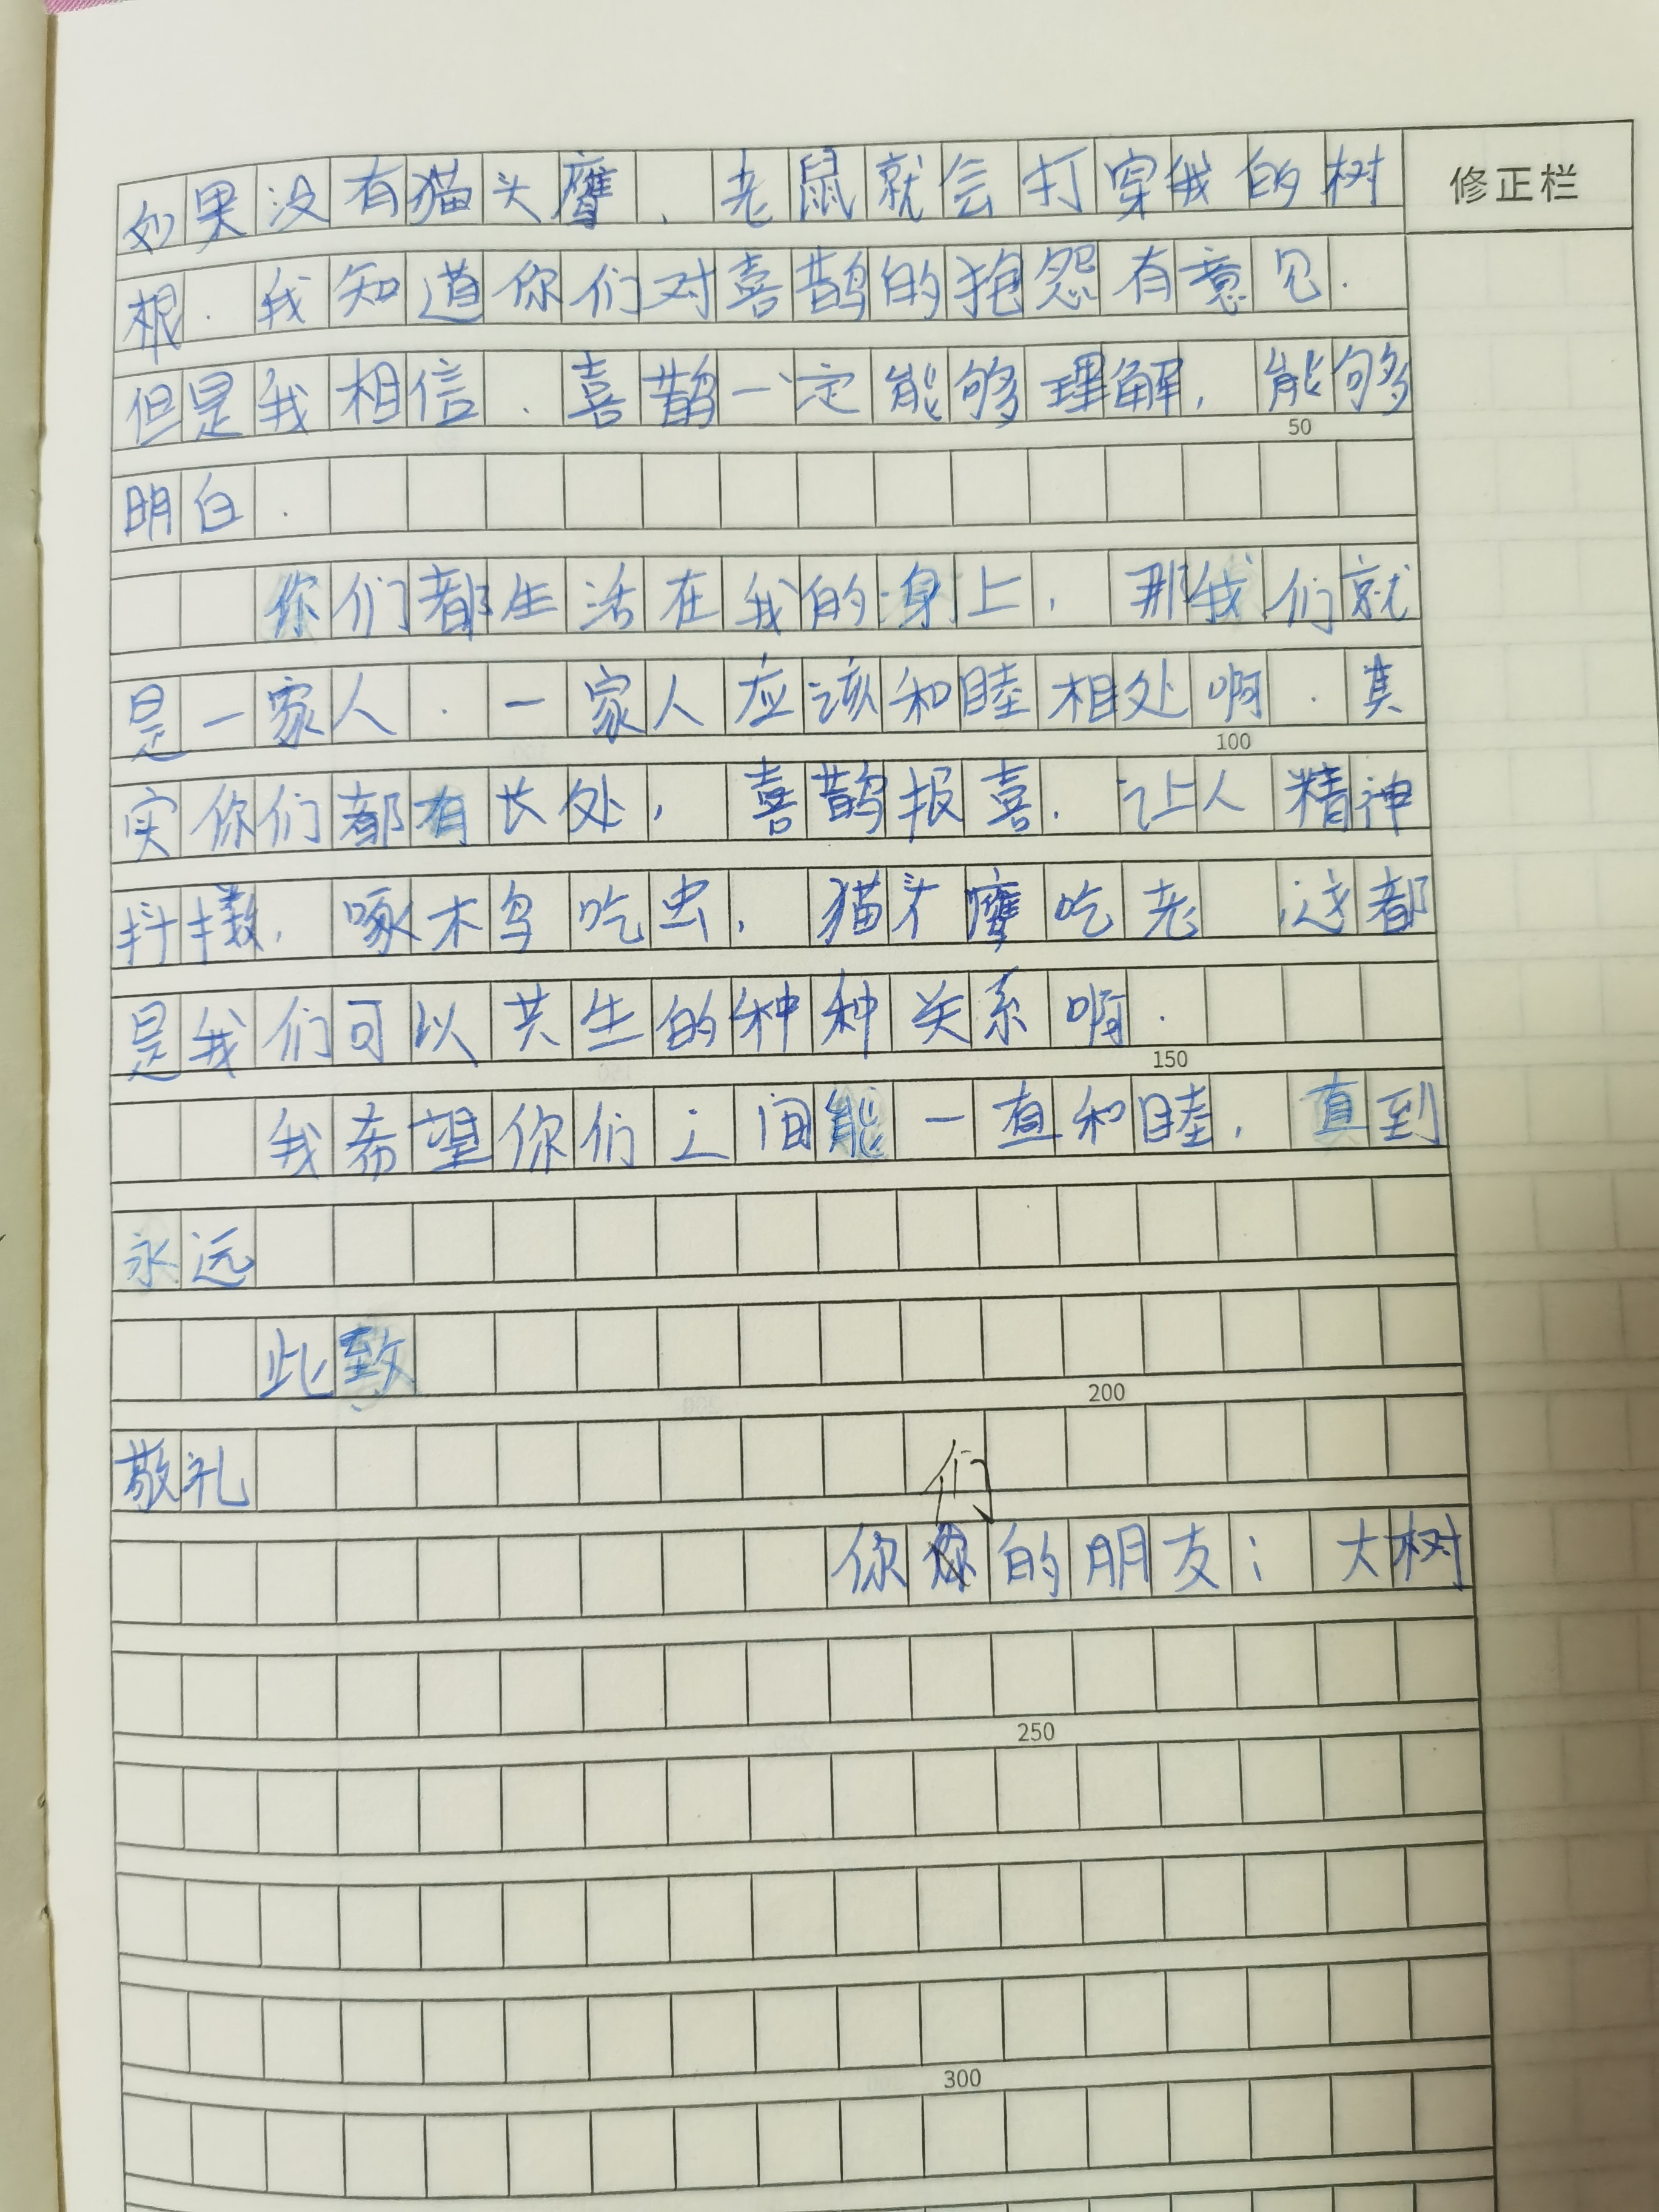 如果没有猫头鹰，老鼠就会打穿我的树
修正栏
根．我知道你们对喜鹊的抱怨有意见．
但是我相信．喜鹊一定能够理解，能够
50
明白．
你们都生活在我的身上，那我们就
是一家人．一家人应该和睦相处啊．其
100
实你们都有长处，喜鹊报喜．让人精神
抖擞，啄木鸟吃虫，猫头鹰吃老 这都
是我们可以共生的种种关系啊．
150
我希望你们之间能一直和睦，直到
永远
此致
200
敬礼
们
你的朋友：大树
250
300